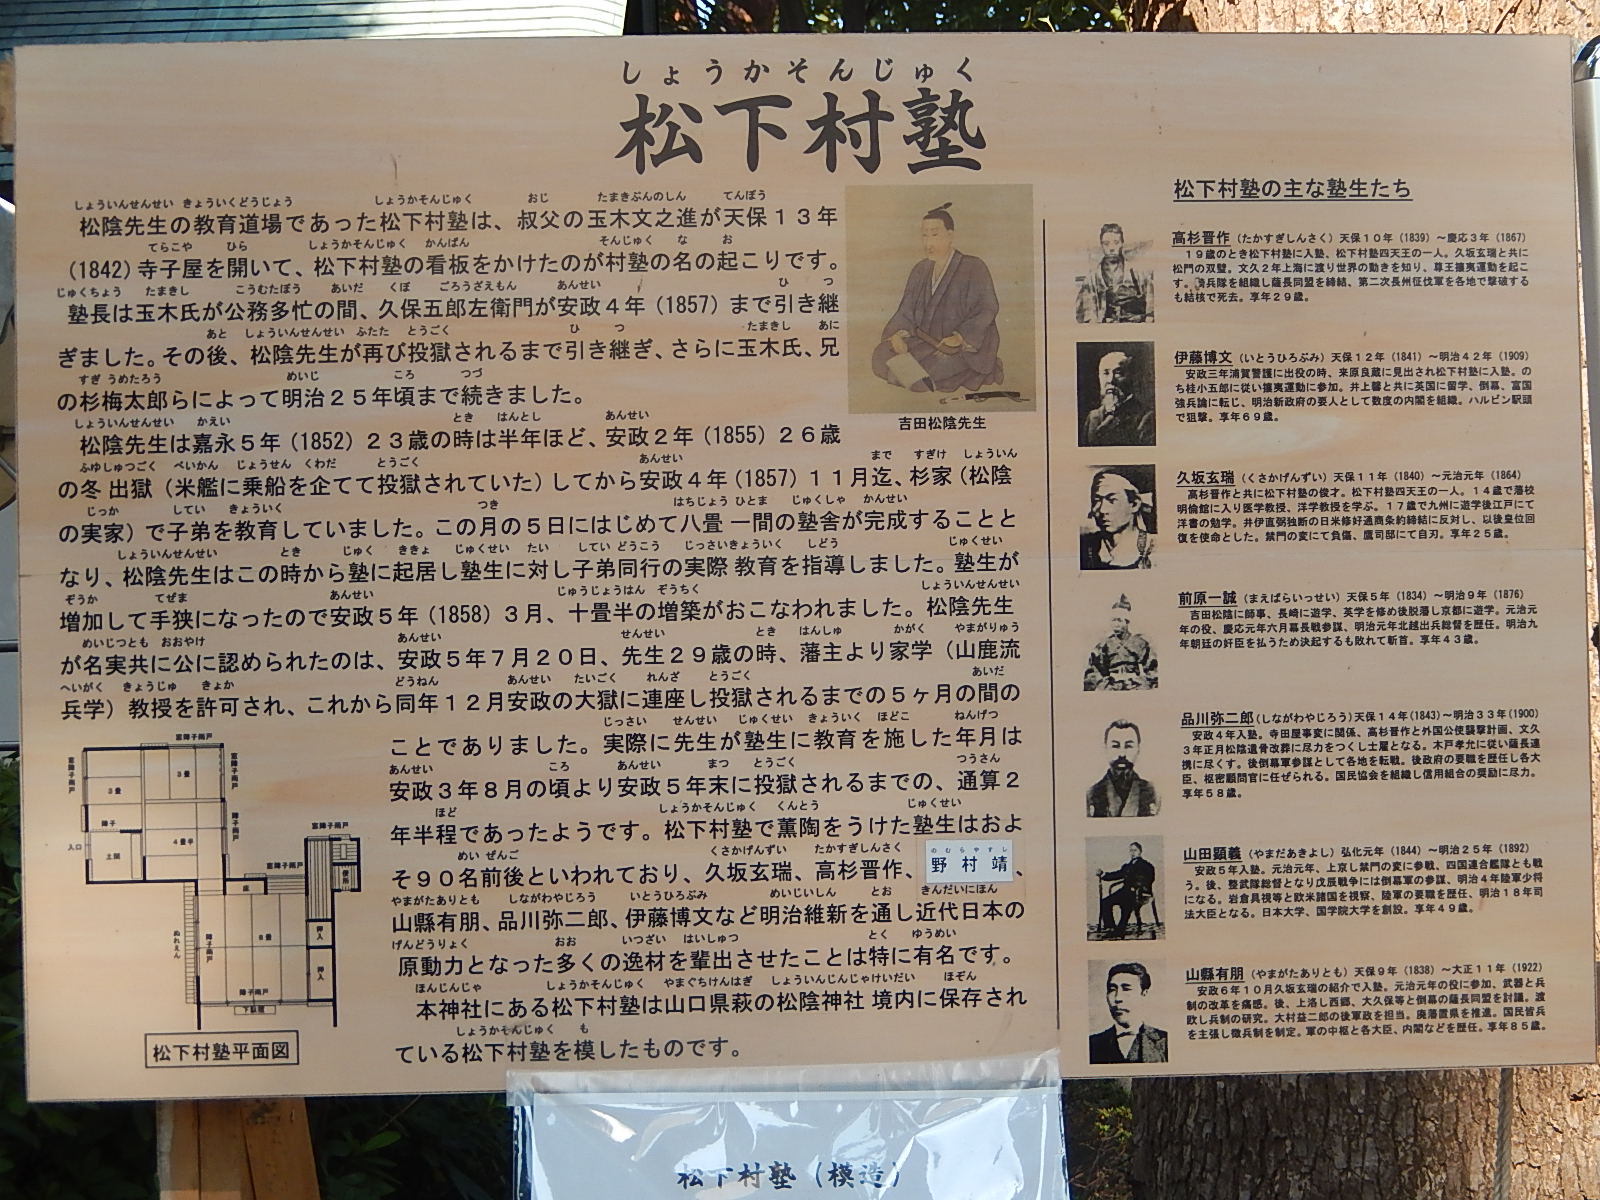 しょうかそんじゅく
松下村塾
松陰先生の教育道場であった松下村塾は、叔父の玉木文之進が天保１３年
(1842) 寺子屋を開いて、松下村塾の看板をかけたのが村塾の名の起こりです。
塾長は玉木氏が公務多忙の間、久保五郎左衛門が安政４年 (1857) まで引き継
ぎました。その後、松陰先生が再び投獄されるまで引き継ぎ、さらに玉木氏、兄
の杉梅太郎らによって明治２５年頃まで続きました。
松陰先生は嘉永５年 (1852) ２３歳の時は半年ほど、安政２年 (1855) ２６歳
の冬 出獄 (米艦に乗船を企てて投獄されていた) してから安政４年 (1857) １１月迄、杉家 (松陰
の実家) で子弟を教育していました。この月の５日にはじめて八畳 一間の塾舎が完成することと
なり、松陰先生はこの時から塾に起居し塾生に対し子弟同行の実際 教育を指導しました。塾生が
増加して手狭になったので安政５年 (1858) ３月、十畳半の増築がおこなわれました。松陰先生
が名実共に公に認められたのは、安政５年７月２０日、先生２９歳の時、藩主より家学 (山鹿流
兵学) 教授を許可され、これから同年１２月安政の大獄に連座し投獄されるまでの５ヶ月の間の
ことでありました。実際に先生が塾生に教育を施した年月は
安政３年８月の頃より安政５年末に投獄されるまでの、通算２
年半程であったようです。松下村塾で薫陶をうけた塾生はおよ
そ９０名前後といわれており、久坂玄瑞、高杉晋作、野村靖、
山縣有朋、品川弥二郎、伊藤博文など明治維新を通し近代日本の
原動力となった多くの逸材を輩出させたことは特に有名です。
本神社にある松下村塾は山口県萩の松陰神社 境内に保存され
ている松下村塾を模したものです。
吉田松陰先生
松下村塾平面図
松下村塾の主な塾生たち
高杉晋作 (たかすぎしんさく) 天保１０年 (1839) ～慶応３年 (1867)
１９歳のとき松下村塾に入塾、松下村塾四天王の一人。久坂玄瑞と共に
松門の双璧。文久２年上海に渡り世界の動きを知り、尊王攘夷運動を起こ
す。奇兵隊を組織し薩長同盟を締結、第二次長州征伐軍を各地で撃破する
も結核で死去。享年２９歳。
伊藤博文 (いとうひろぶみ) 天保１２年 (1841) ～明治４２年 (1909)
安政三年浦賀警護に出役の時、来原良蔵に見出され松下村塾に入塾。の
ち桂小五郎に従い攘夷運動に参加。井上馨と共に英国に留学、倒幕、富国
強兵論に転じ、明治新政府の要人として数度の内閣を組織。ハルビン駅頭
で狙撃。享年６９歳。
久坂玄瑞 (くさかげんずい) 天保１１年 (1840) ～元治元年 (1864)
高杉晋作と共に松下村塾の俊才。松下村塾四天王の一人。１４歳で藩校
明倫館に入り医学教授、洋学教授を学ぶ。１７歳で九州に遊学後江戸にて
洋書の勉学。井伊直弼独断の日米修好通商条約締結に反対し、以後皇位回
復を使命とした。禁門の変にて負傷、鷹司邸にて自刃。享年２５歳。
前原一誠 (まえばらいっせい) 天保５年 (1834) ～明治９年 (1876)
吉田松陰に師事、長崎に遊学、英学を修め後脱藩し京都に遊学。元治元
年の役、慶応元年六月幕長戦参謀、明治元年北越出兵総督を歴任。明治九
年朝廷の奸臣を払うため決起するも敗れて斬首。享年４３歳。
品川弥二郎 (しながわやじろう) 天保１４年 (1843) ～明治３３年 (1900)
安政４年入塾。寺田屋事変に関係、高杉晋作と外国公使襲撃計画、文久
３年正月松陰遺骨改葬に尽力をつくし士雇となる。木戸孝允に従い薩長連
携に尽くす。後倒幕軍参謀として各地を転戦。後政府の要職を歴任し各大
臣、枢密顧問官に任ぜられる。国民協会を組織し信用組合の奨励に尽力。
享年５８歳。
山田顕義 (やまだあきよし) 弘化元年 (1844) ～明治２５年 (1892)
安政５年入塾。元治元年、上京し禁門の変に参戦、四国連合艦隊とも戦
う。後、整武隊総督となり戊辰戦争には倒幕軍の参謀、明治４年陸軍少将
になる。岩倉具視等と欧米諸国を視察、陸軍の要職を歴任、明治１８年司
法大臣となる。日本大学、国学院大学を創設。享年４９歳。
山縣有朋 (やまがたありとも) 天保９年 (1838) ～大正１１年 (1922)
安政６年１０月久坂玄瑞の紹介で入塾。元治元年の役に参加、武器と兵
制の改革を痛感。後、上洛し西郷、大久保等と倒幕の薩長同盟を討議。渡
欧し兵制の研究。大村益二郎の後軍政を担当。廃藩置県を推進。国民皆兵
を主張し徴兵制を制定。軍の中枢と各大臣、内閣などを歴任。享年８５歳。
松下村塾 (模造)